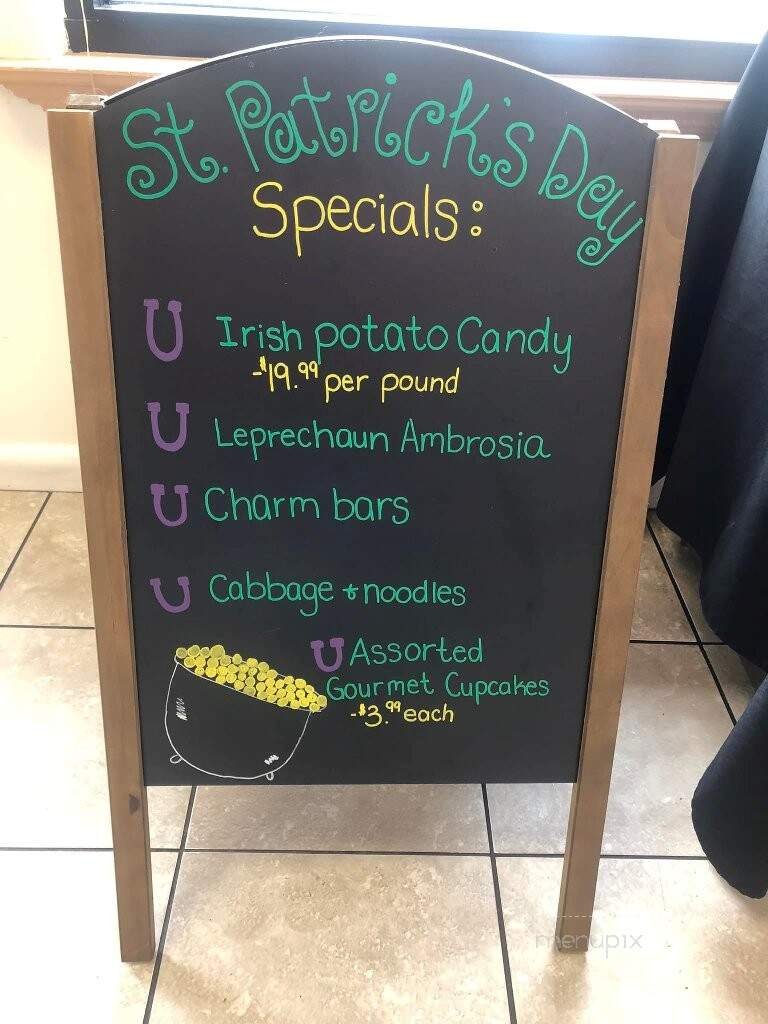 St. Patrick's Day
Specials:
Irish potato Candy
-$19.99 per pound
Leprechaun Ambrosia
Charm bars
Cabbage + noodles
Assorted
Gourmet Cupcakes
-$3.99 each
menupix